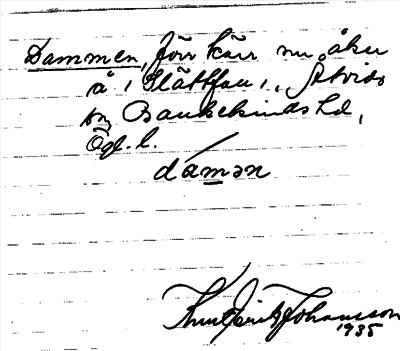 Dammen, förr kärr nu åker
å, Slättfall, Åtvids
sn, Bankekinds hd,
Ögl. l.
dámǝn
Knut Gerit Johansson
1935